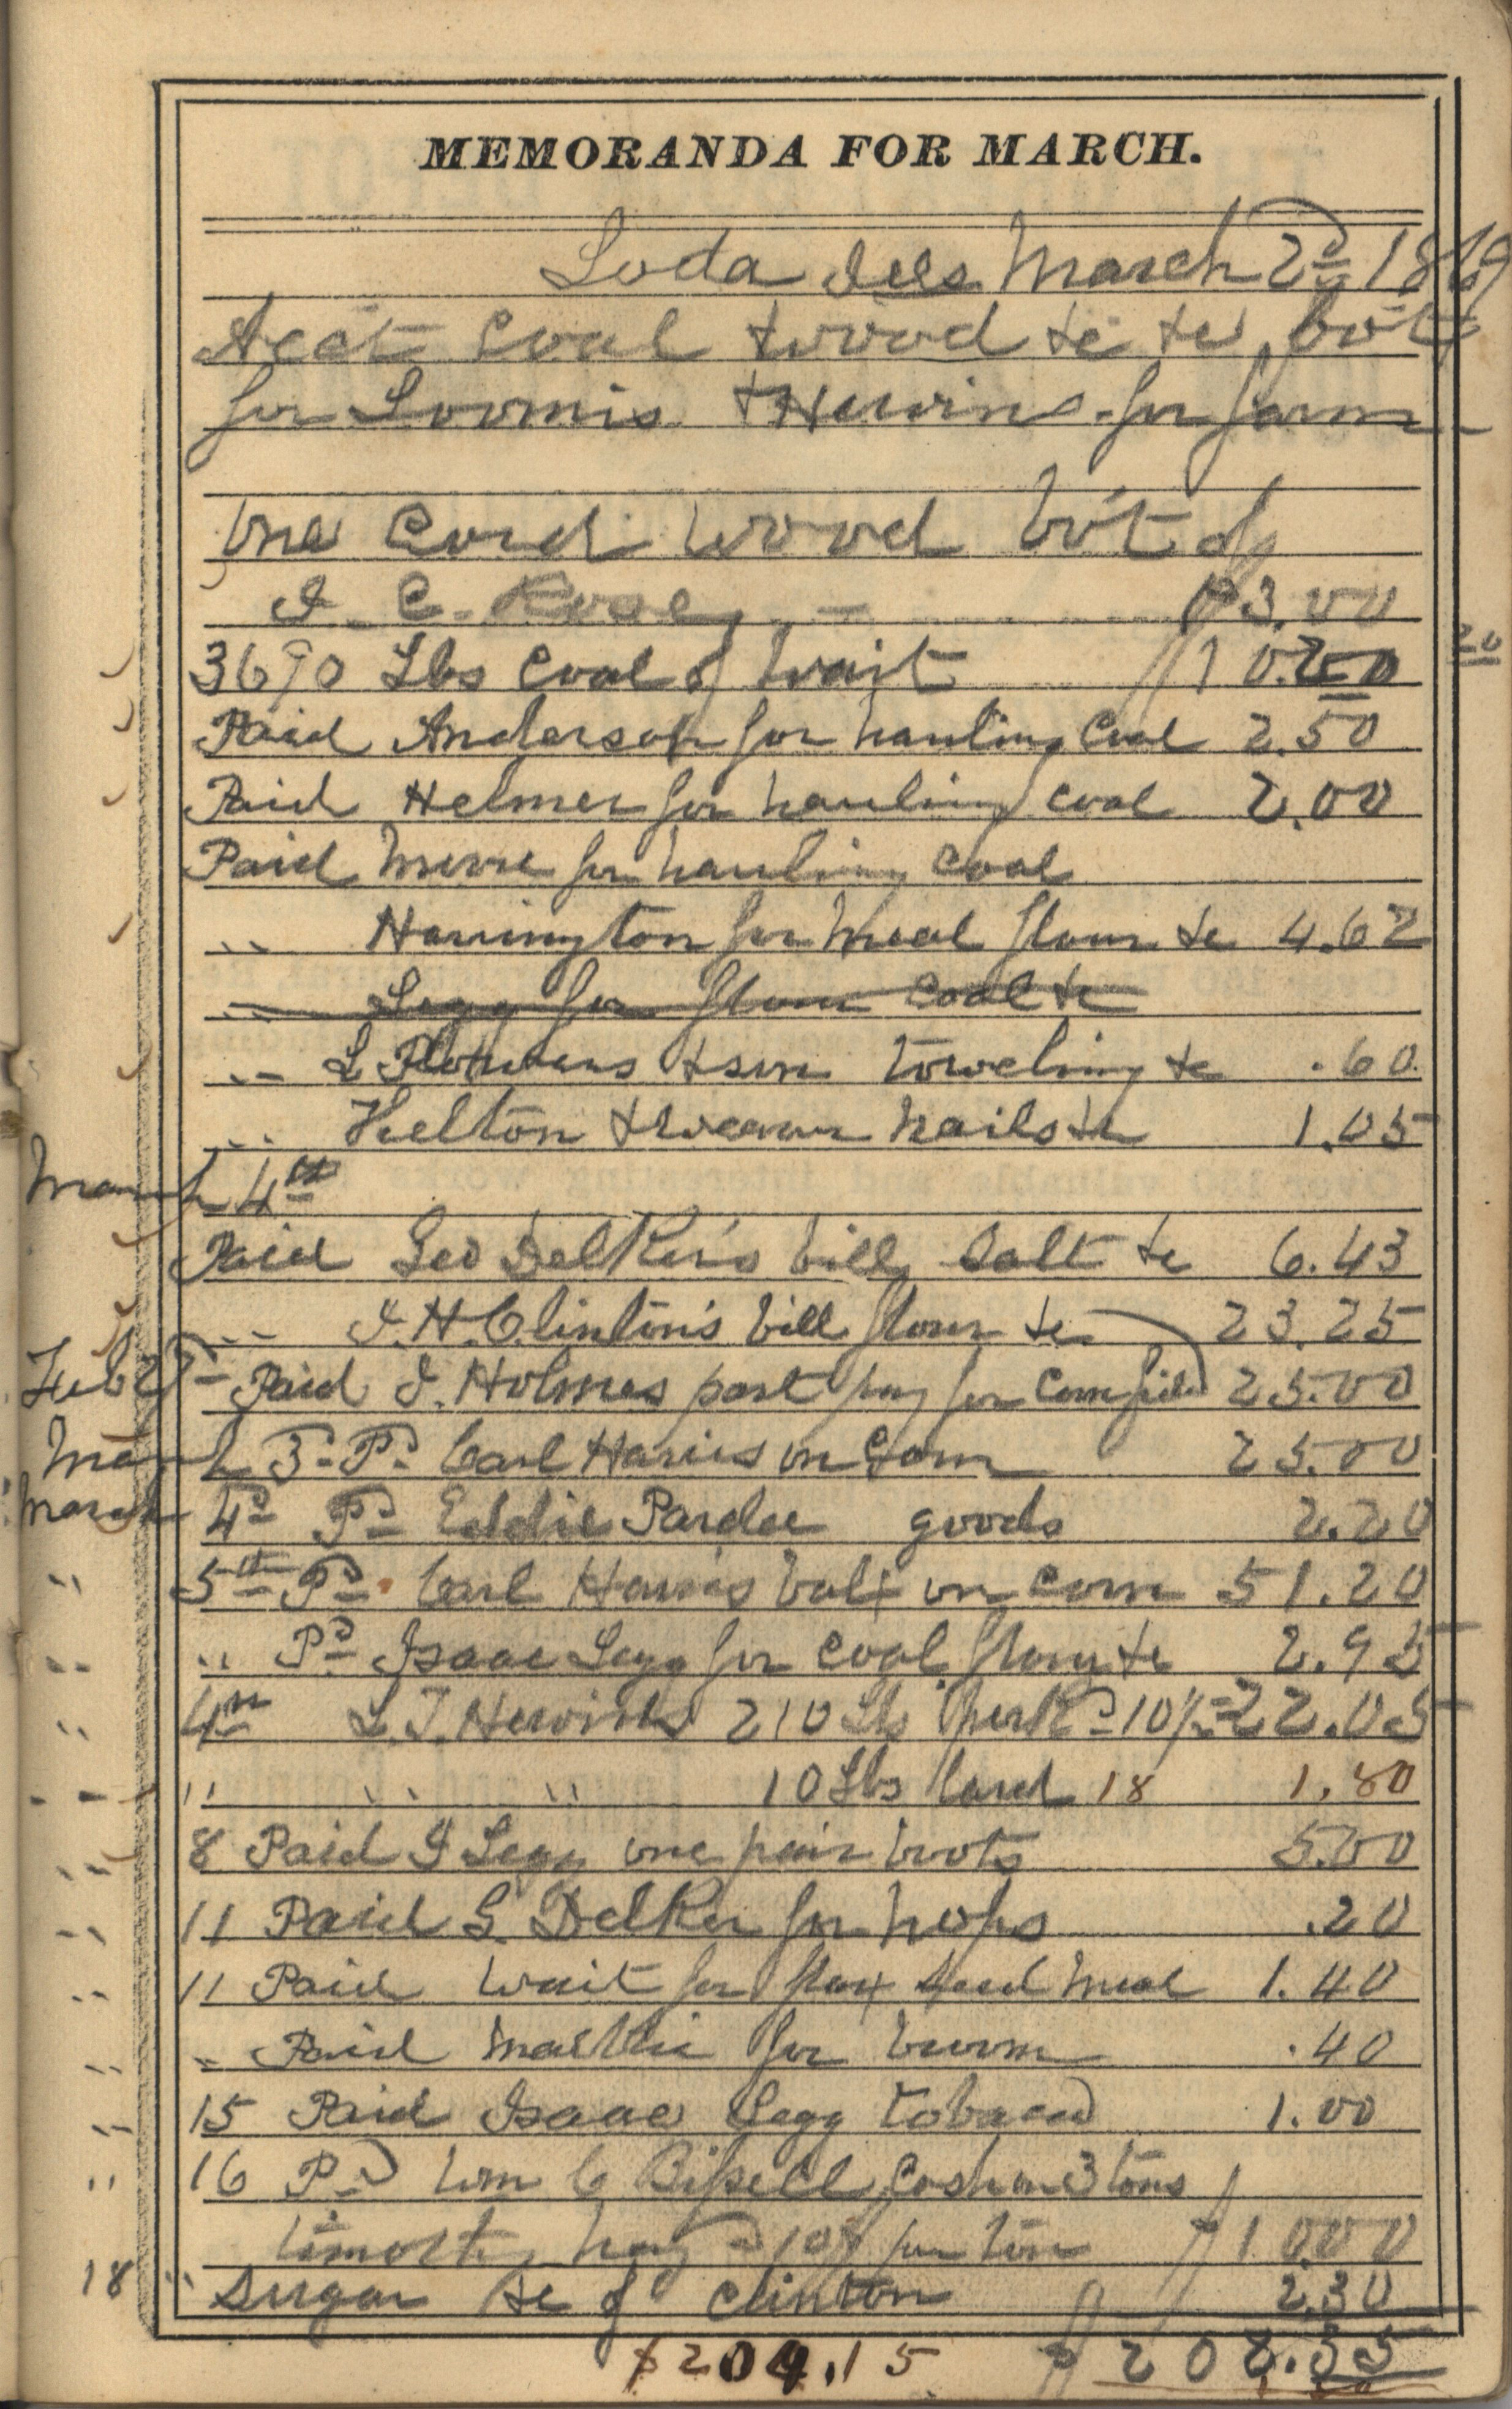 MEMORANDA FOR MARCH.
Loda Ills March 2d 1869
Acct Coal & wood &c &c bo't
for Loomis & Hewins for farm
One Cord Wood bo't of
I. C. $3.00
3690 Lbs Coal of Wait $10.20 20
Paid Anderson for hauling Coal 2.50
Paid Helmer for hauling coal 2.00
Paid for hauling coal
" Harrington for Meal flour &c 4.62
" Legg for flour coal &c
" L & son toweling &c .60
" Nails &c 1.05
March 4th
Paid Geo Delker's bill Salt &c 6.43
" I. H. Clinton's bill flour &c 23.25
Feb 27 Paid I. Holmes part pay for Corn 25.00
March 3d Pd Carl Harris on Corn 25.00
March 4th Pd Eddie Pardee goods 2.20
" 5th Pd Carl Harris bal on corn 51.20
" " Pd Isaac Legg for Coal &c 2.95
" 4th L. T. Hewins 210 Lbs pork 10½ 22.05
" " " " 10 Lbs lard 18 1.80
" 8 Paid I Legg one pair boots 5.00
" 11 Paid G. Delker for hops .20
" 11 Paid Wait for flax seed Meal 1.40
" " Paid for broom .40
" 15 Paid Isaac Legg tobacco 1.00
" 16 Pd Wm C Bissell Cash on 3 tons
timothy hay 10$ per ton $10.00
18 " Sugar &c of Clinton 2.30
$209.15 $208.35